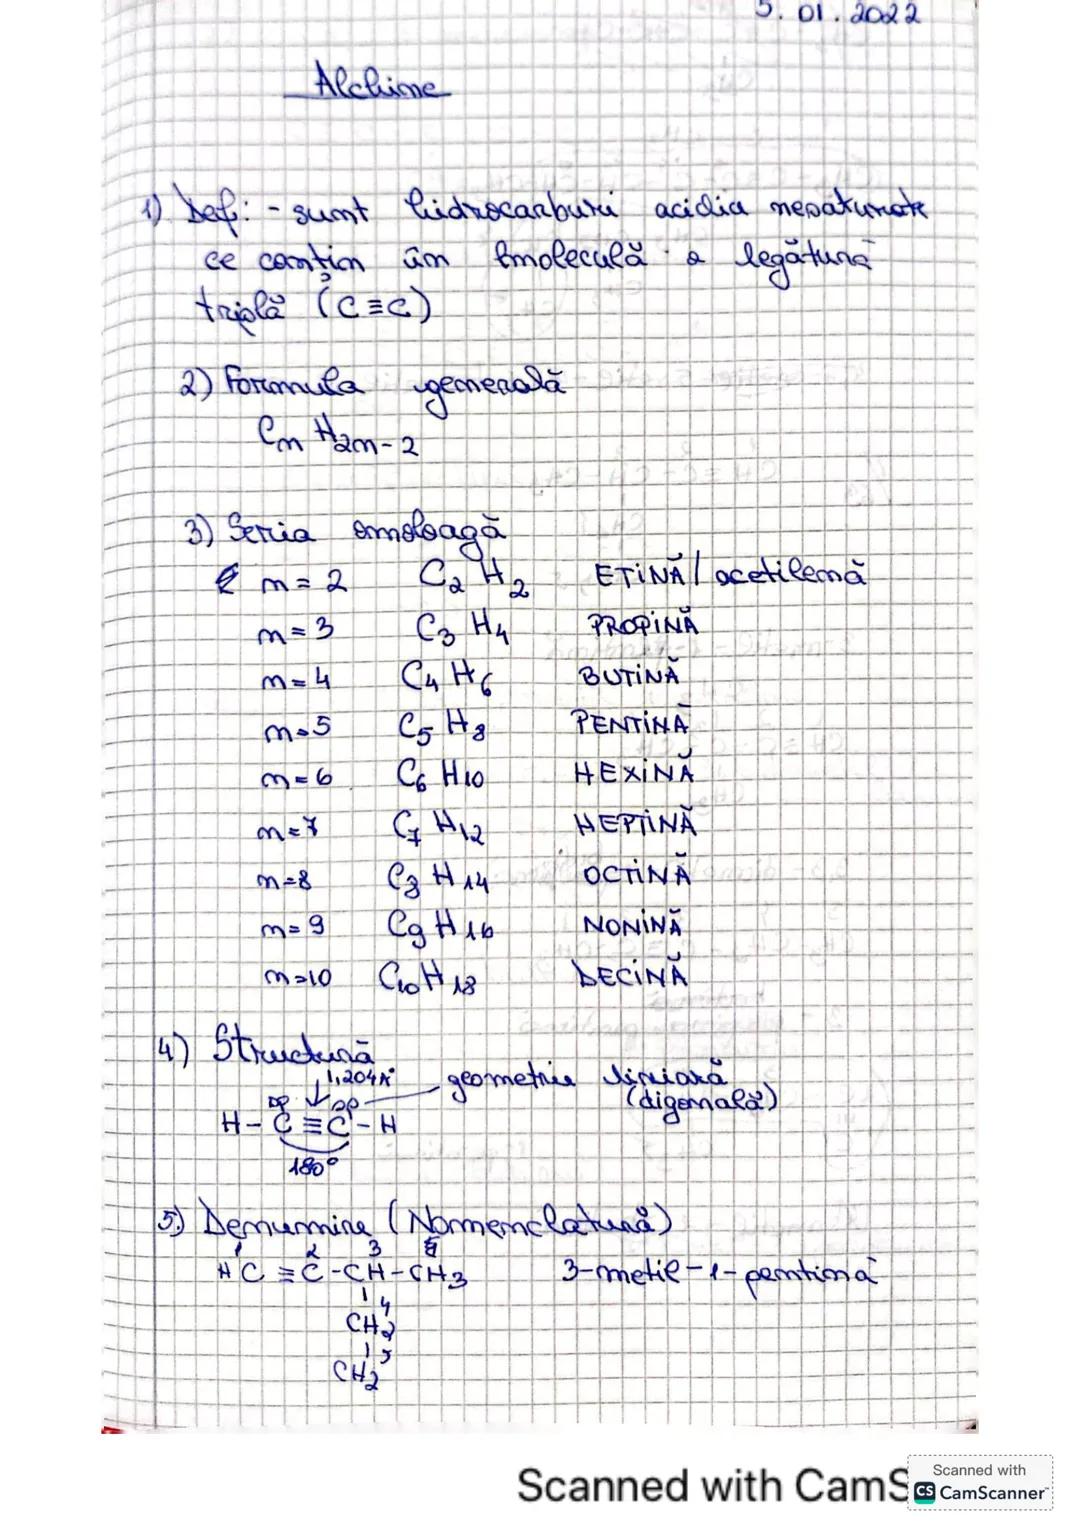 5.01.2022
Alchine
1) Def: - sunt hidrocarburi aciclia nesaturate
ce conțin în moleculă o legătură
triplă (C≡C)
2) Formula generală
Cn H2n-2
3) Seria omoloagă
n=2 C2H2 ETINĂ/acetilenă
n=3 C3H4 PROPINĂ
n=4 C4H6 BUTINĂ
n=5 C5H8 PENTINĂ
n=6 C6H10 HEXINĂ
n=7 C7H12 HEPTINĂ
n=8 C8H14 OCTINĂ
n=9 C9H16 NONINĂ
n=10 C10H18 DECINĂ
4) Structură
1,204Å geometrie liniară
sp sp (digonală)
H-C≡C-H
180°
5) Denumire (Nomenclatură)
1 2 3
HC≡C-CH-CH3 3-metil-1-pentină
4
CH2
5
CH2
Scanned with CamS
Scanned with
CS CamScanner